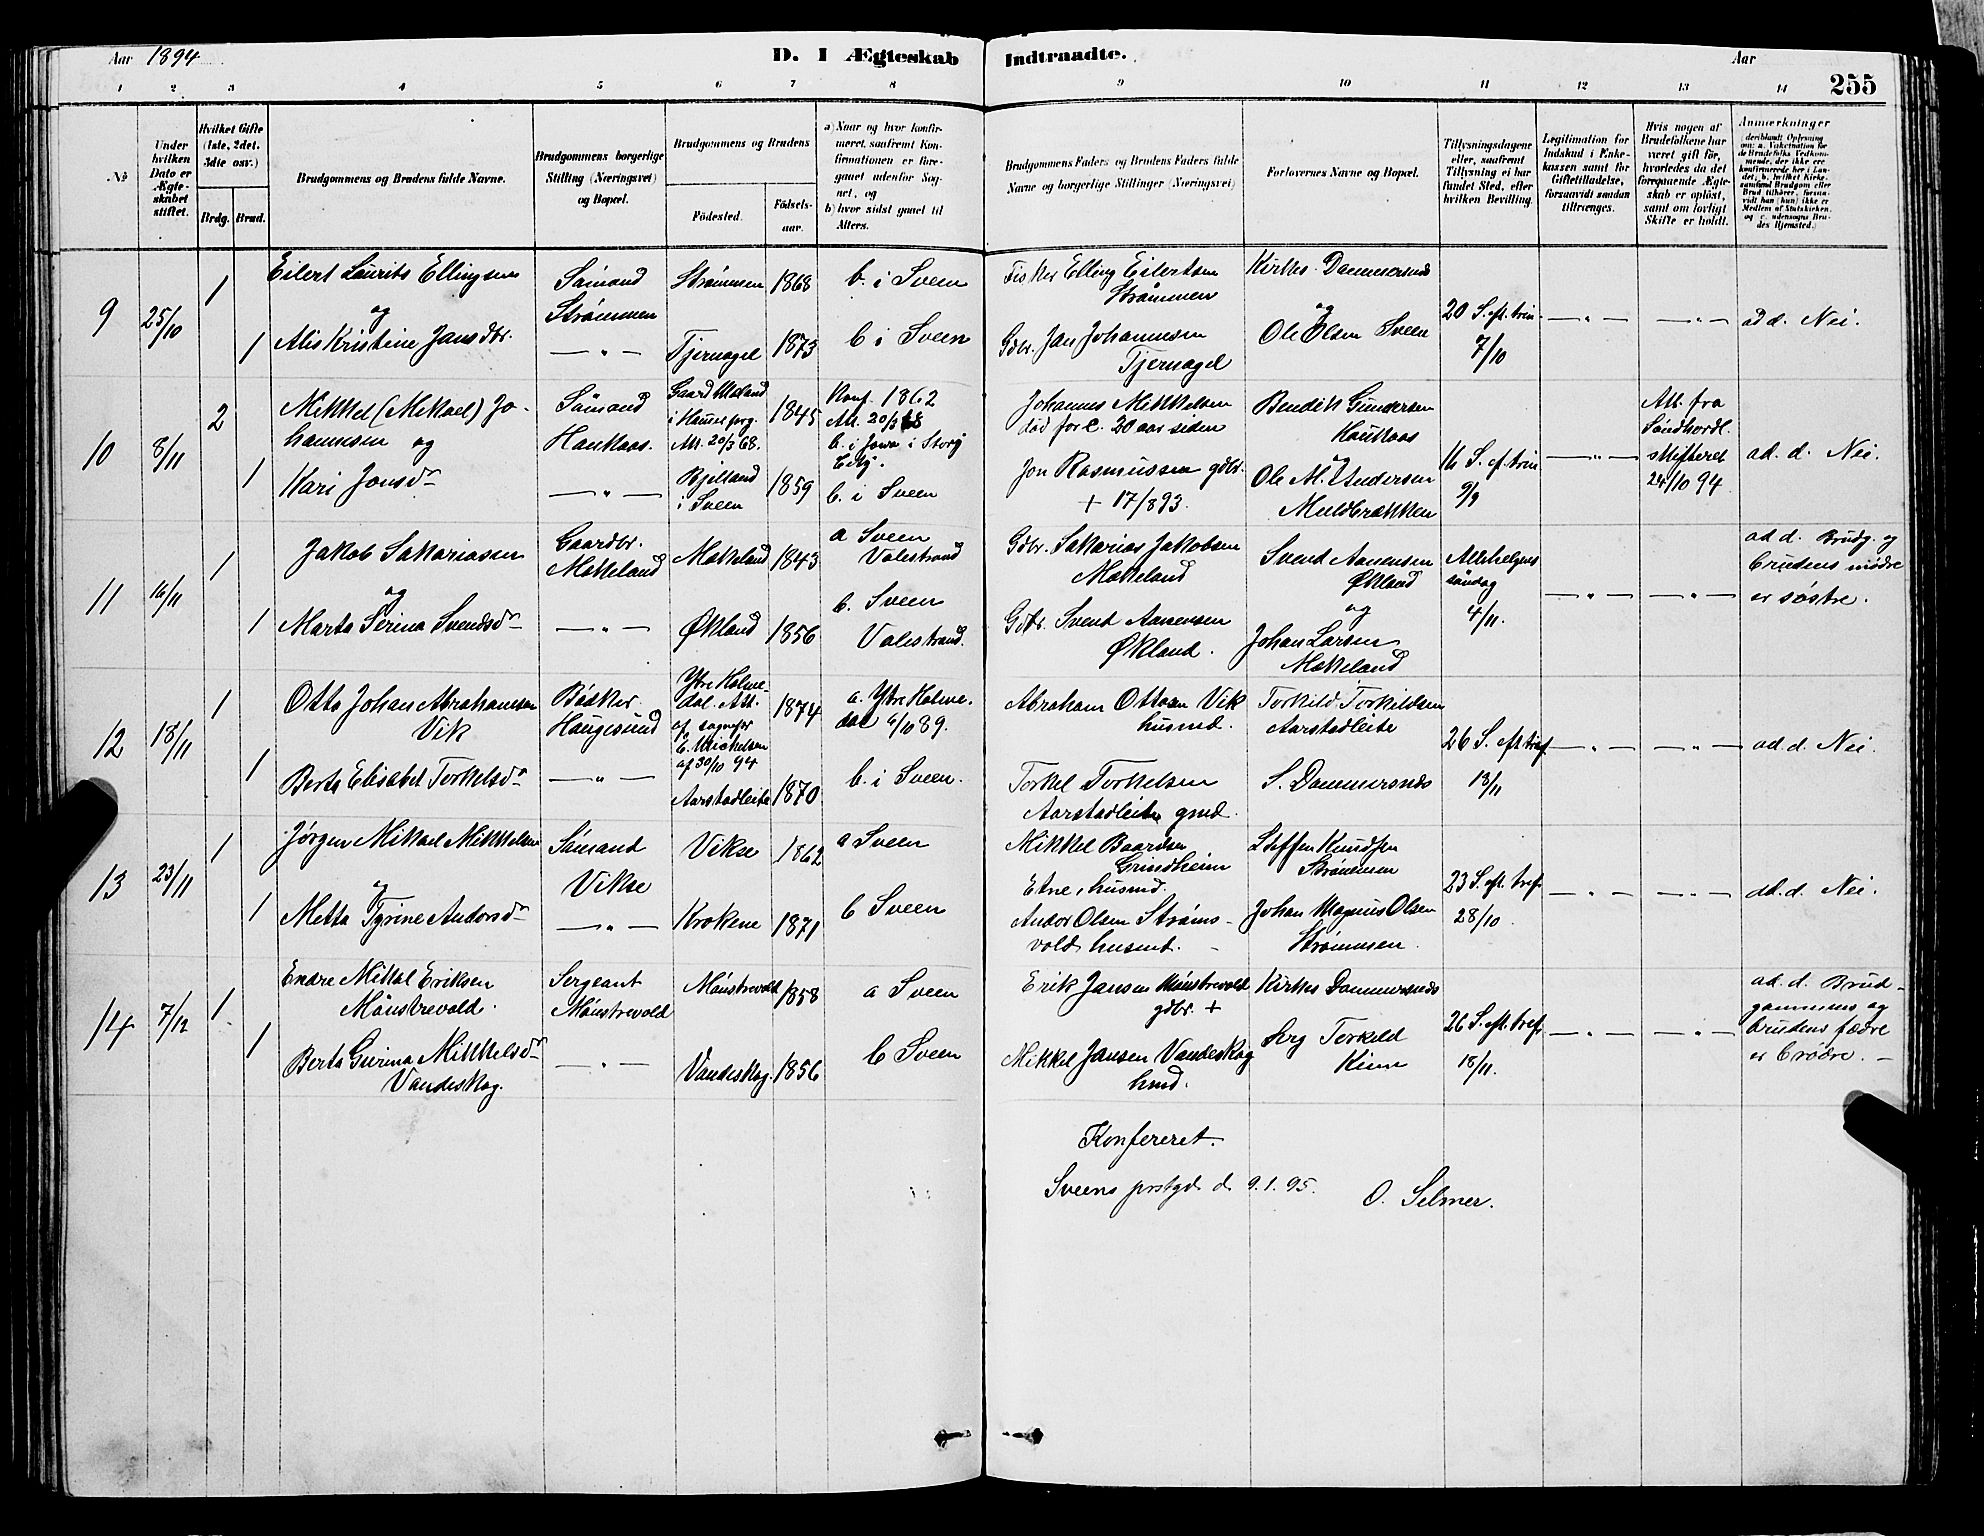 Aar 1894
D. I Ægteskab Indtraadte.
Aar
255
1 2 3 4 5 6 7 8 9 10 11 12 13 14
No
Under hvilken Dato er Ægte-skabet stiftet.
Hvilket Gifte (1ste, 2det, 3die osv.)
Brdg. Brud.
Brudgommens og Brudens fulde Navne.
Brudgommens borgerlige Stilling (Næringsvei) og Bopæl.
Brudgommens og Brudens
Födested.
Födsels-aar.
a) Naar og hvor konfir-meret, saafremt Kon-firmationen er fore-gaaet udenfor Sog-net, og
b) hvor sidst gaaet til Alters.
Brudgommens Faders og Brudens Faders fulde Navne og borgerlige Stillinger (Næringsvei)
Forlovernes Navne og Bopæl.
Tillysningsdagene eller, saafremt Tillysning ei har fundet Sted, efter hvilken Bevilling.
Legitimation for Indskud i Enke-kassen samt for Giftetilladelse, forsaavidt saadan tiltrænges.
Hvis nogen af Brudefolkene har været gift før, hvorledes da det foregaaende Ægte-skab er oplöst, samt om lovligt Skifte er holdt.
Anmærkninger
(deriblandt Oplysning om: a. Vakcination for de Brudefolks Vedkom-mende, der ikke ere konfirmerede her i Lan-det, b. hvilket Kirke-samfund Brudgom eller Brud tilhører, forsaa-vidt han (hun) ikke er Medlem af Statskirken, og c. udensogns Bru-des Hjemsted.)
9 25/10 1 Eilert Laurits Ellingsen Sømand Strømmen Strømmen 1868 b. i Sveen Fisker Elling Eilertsen Strømmen Kirkes. Dammersnes 20 S. eft. trin. 7/10 — " — — " — ad d. Nei.
og
1 Alis Kristine Jansdtr. — " — Tjernagel 1873 b i Sveen Gdbr. Jan Johannesen Tjernagel og Ole Olsen Sveen
10 8/11 2 Mikkel (Mikael) Jo-hannesen og Sømand Haukaas. Gaard i Hauge prg. Att. 20/3 68. 1845 Konf. 1862 Att. 20/3 68 b. i Johannes Mikkelsen død for c. 20 aar siden Bendik Gundersen Haukaas 16 S. ef. trin 9/9 — " — Att. fra Søndhordl. skifteret 24/10 94 ad. d. Nei.
1 Kari Jonsdr — " — Bjelland i Sveen 1859 b. i Sveen Jon Rasmussen gdbr. + 17/893. og Ole M. Andersen Muldbrækken
11 16/11 1 Jakob Sakariassen Gaardbr. Mækeland Mækeland 1843 a Sveen Valestrand Gdbr. Sakarias Jakobsen Mækeland Svend Aanensen Økland Allehelgens søndag 4/11. — " — — " — ad d. Brudg. og brudens mødre er søstre.
og
1 Marta Serina Svendsdr — " — Økland 1856 b. Sveen Valestrand. Gdbr. Svend Aanensen Økland. og Johan Larsen Mækeland
12 18/11 1 Otto Johan Abrahamsen Vik Bødker Haugesund Ytre Holme-dal. Att. af sognepr E. Michelsen af 30/10 94 1874 a. Ytre Holme-dal 6/10 89. Abraham Ottosen Vik husmd. Torkild Torkildsen Aarstadleite 26 S. eft. tref. 18/11 — " — — " — ad. d. Nei.
1 Berta Elisabet Torkelsdr — " — Aarstadleite 1870 b. i Sveen. Torkel Torkelsen Aarstadleite gmd. S. Dammersnes
13 23/11 1 Jørgen Mikael Mikkelsen Sømand Vikse Vikse 1862 a Sveen Mikkel Baardsen Grindheim Etne, husmd. Steffen Knudsen Strømmen 23 S. eft. tref. 28/10 — " — — " — ad. d. Nei.
og
1 Metta Tyrine Andorsdr — " — Krokene 1871 b Sveen Andor Olsen Strøms-vold husmd. Johan Magnus Olsen Strømmen.
14 7/12 1 Endre Mikal Eriksen Mønstrevold. Sergeant Mønstrevold Mønstrevold 1858 a Sveen Erik Jansen Mønstrevold gdbr. + Kirkes Dammersnes 26 S. eft. tref. 18/11. — " — — " — ad. d. Brud-gommens og brudens fædre er brødre. —
1 Berta Gurina Mikkelsdr Vandeskog. — " — Vandeskog. 1856 b Sveen Mikkel Jansen Vandeskog hmd. Serg Torkild
Konfereret.
Sveens prstgd. d. 9.1.95. O. Selmer.